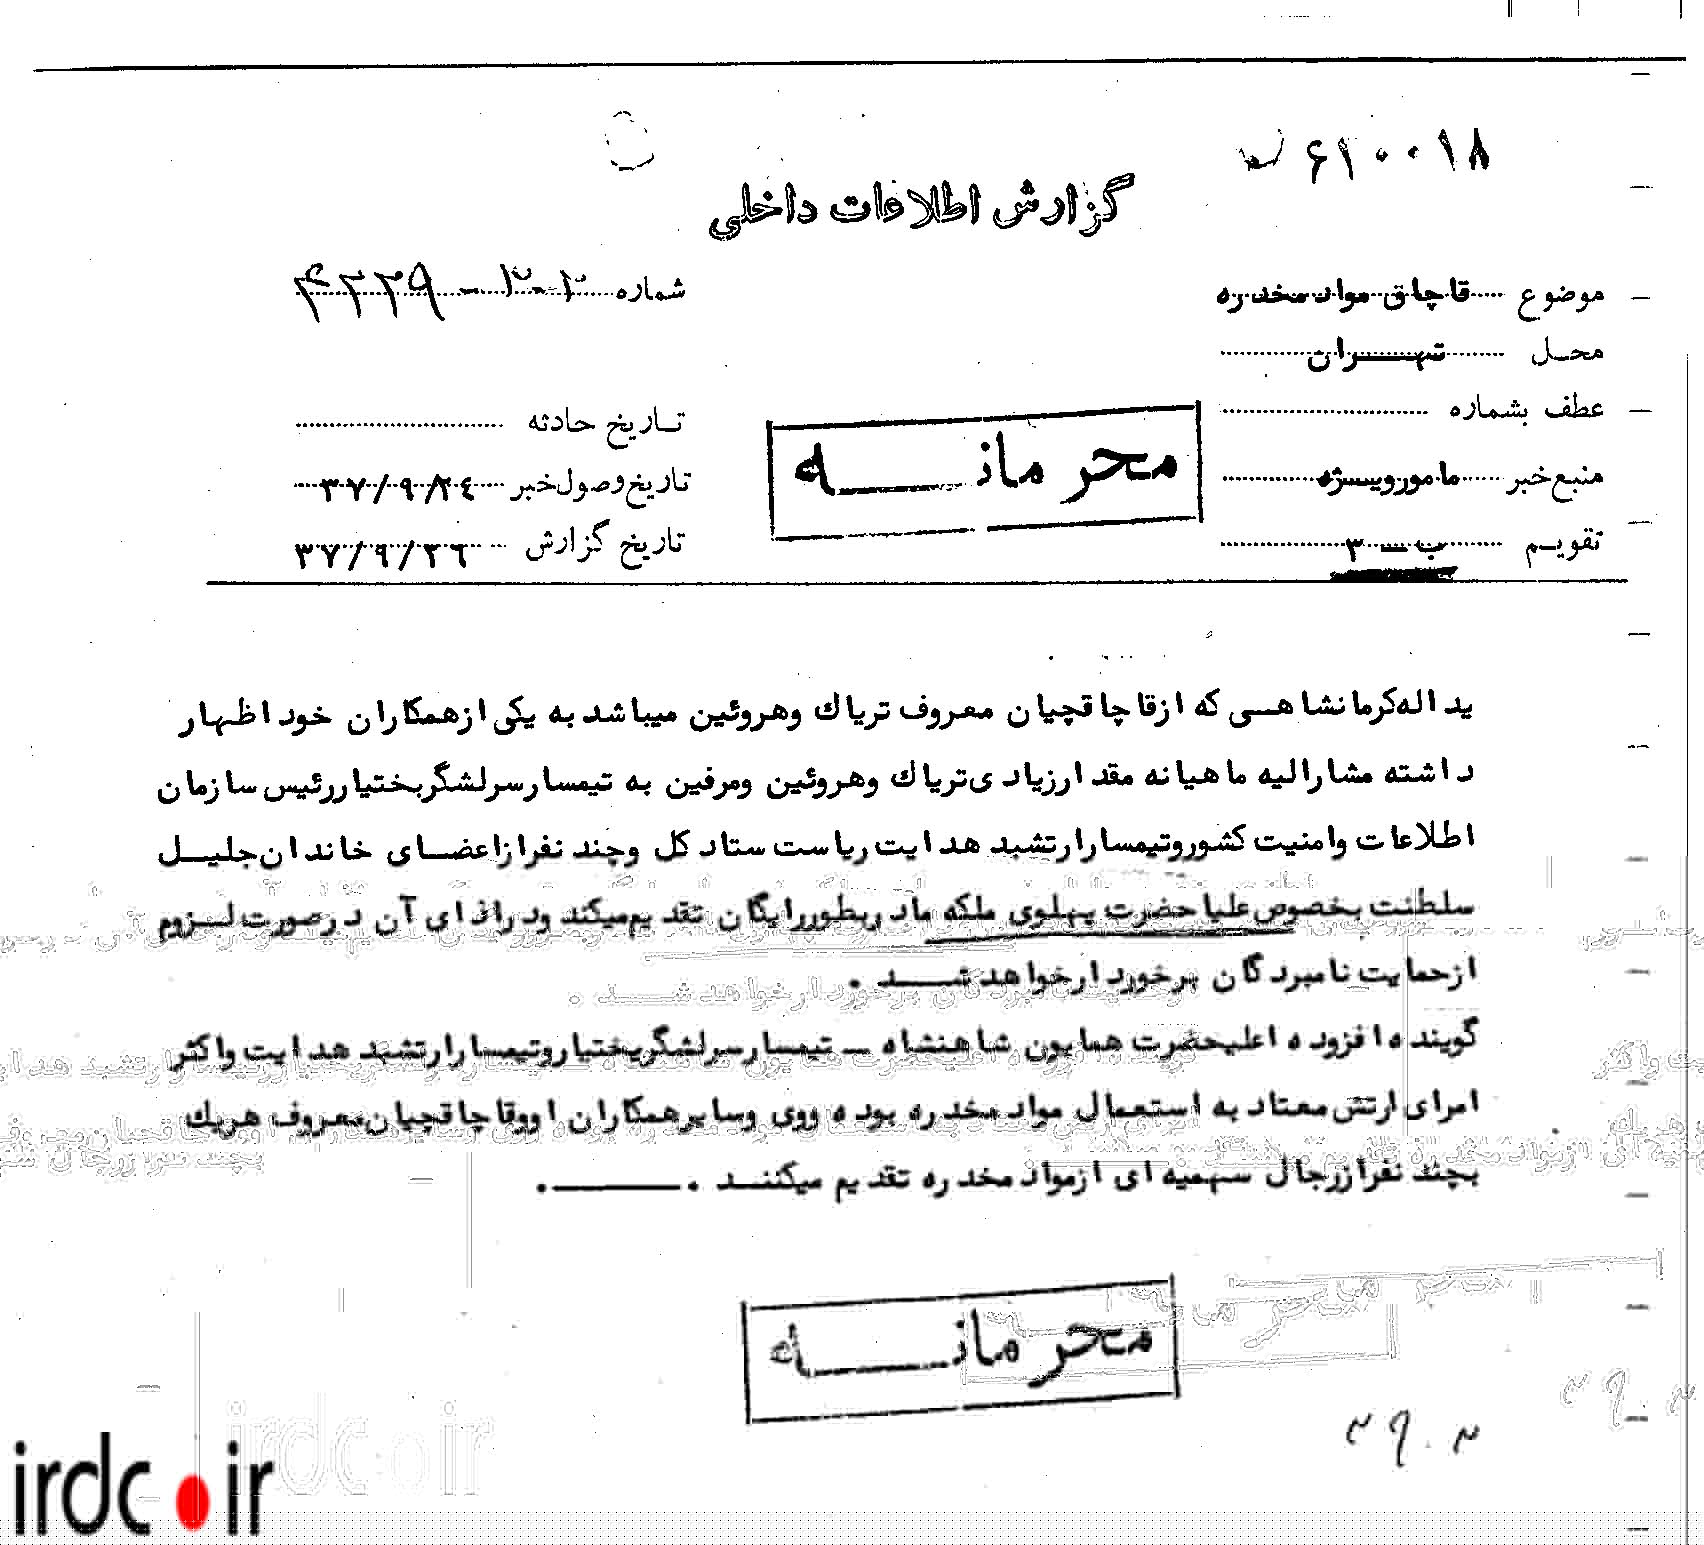 ۶۱۰۰۱۸
گزارش اطلاعات داخلی
موضوع قاچاق مواد مخدره
شماره
محل تهران
عطف بشماره
تاریخ حادثه
محرمانه
منبع خبر مامور ویژه
تاریخ وصول خبر ۳۷/۹/۲٤
تقویم ب - ۳
تاریخ گزارش ۳۷/۹/۲٦
یداله کرمانشاهی که از قاچاقچیان معروف تریاك و هروئین میباشد به یکی از همکاران خود اظهار
داشته مشارالیه ماهیانه مقدار زیادی تریاك و هروئین و مرفین به تیمسار سرلشگر بختیار رئیس سازمان
اطلاعات و امنیت کشور و تیمسار ارتشبد هدایت ریاست ستاد کل و چند نفر از اعضای خاندان جلیل
سلطنت بخصوص علیاحضرت پهلوی ملکه مادر بطور رایگان تقدیم میکند و در ازای آن در صورت لزوم
از حمایت نامبردگان برخوردار خواهد شد .
گوینده افزوده اعلیحضرت همایون شاهنشاه – تیمسار سرلشگر بختیار و تیمسار ارتشبد هدایت و اکثر
امرای ارتش معتاد به استعمال مواد مخدره بوده و وی و سایر همکاران او و قاچاقچیان معروف هر یك
بچند نفر از رجال سهمیه ای از مواد مخدره تقدیم میکنند .
محرمانه
irdc.ir